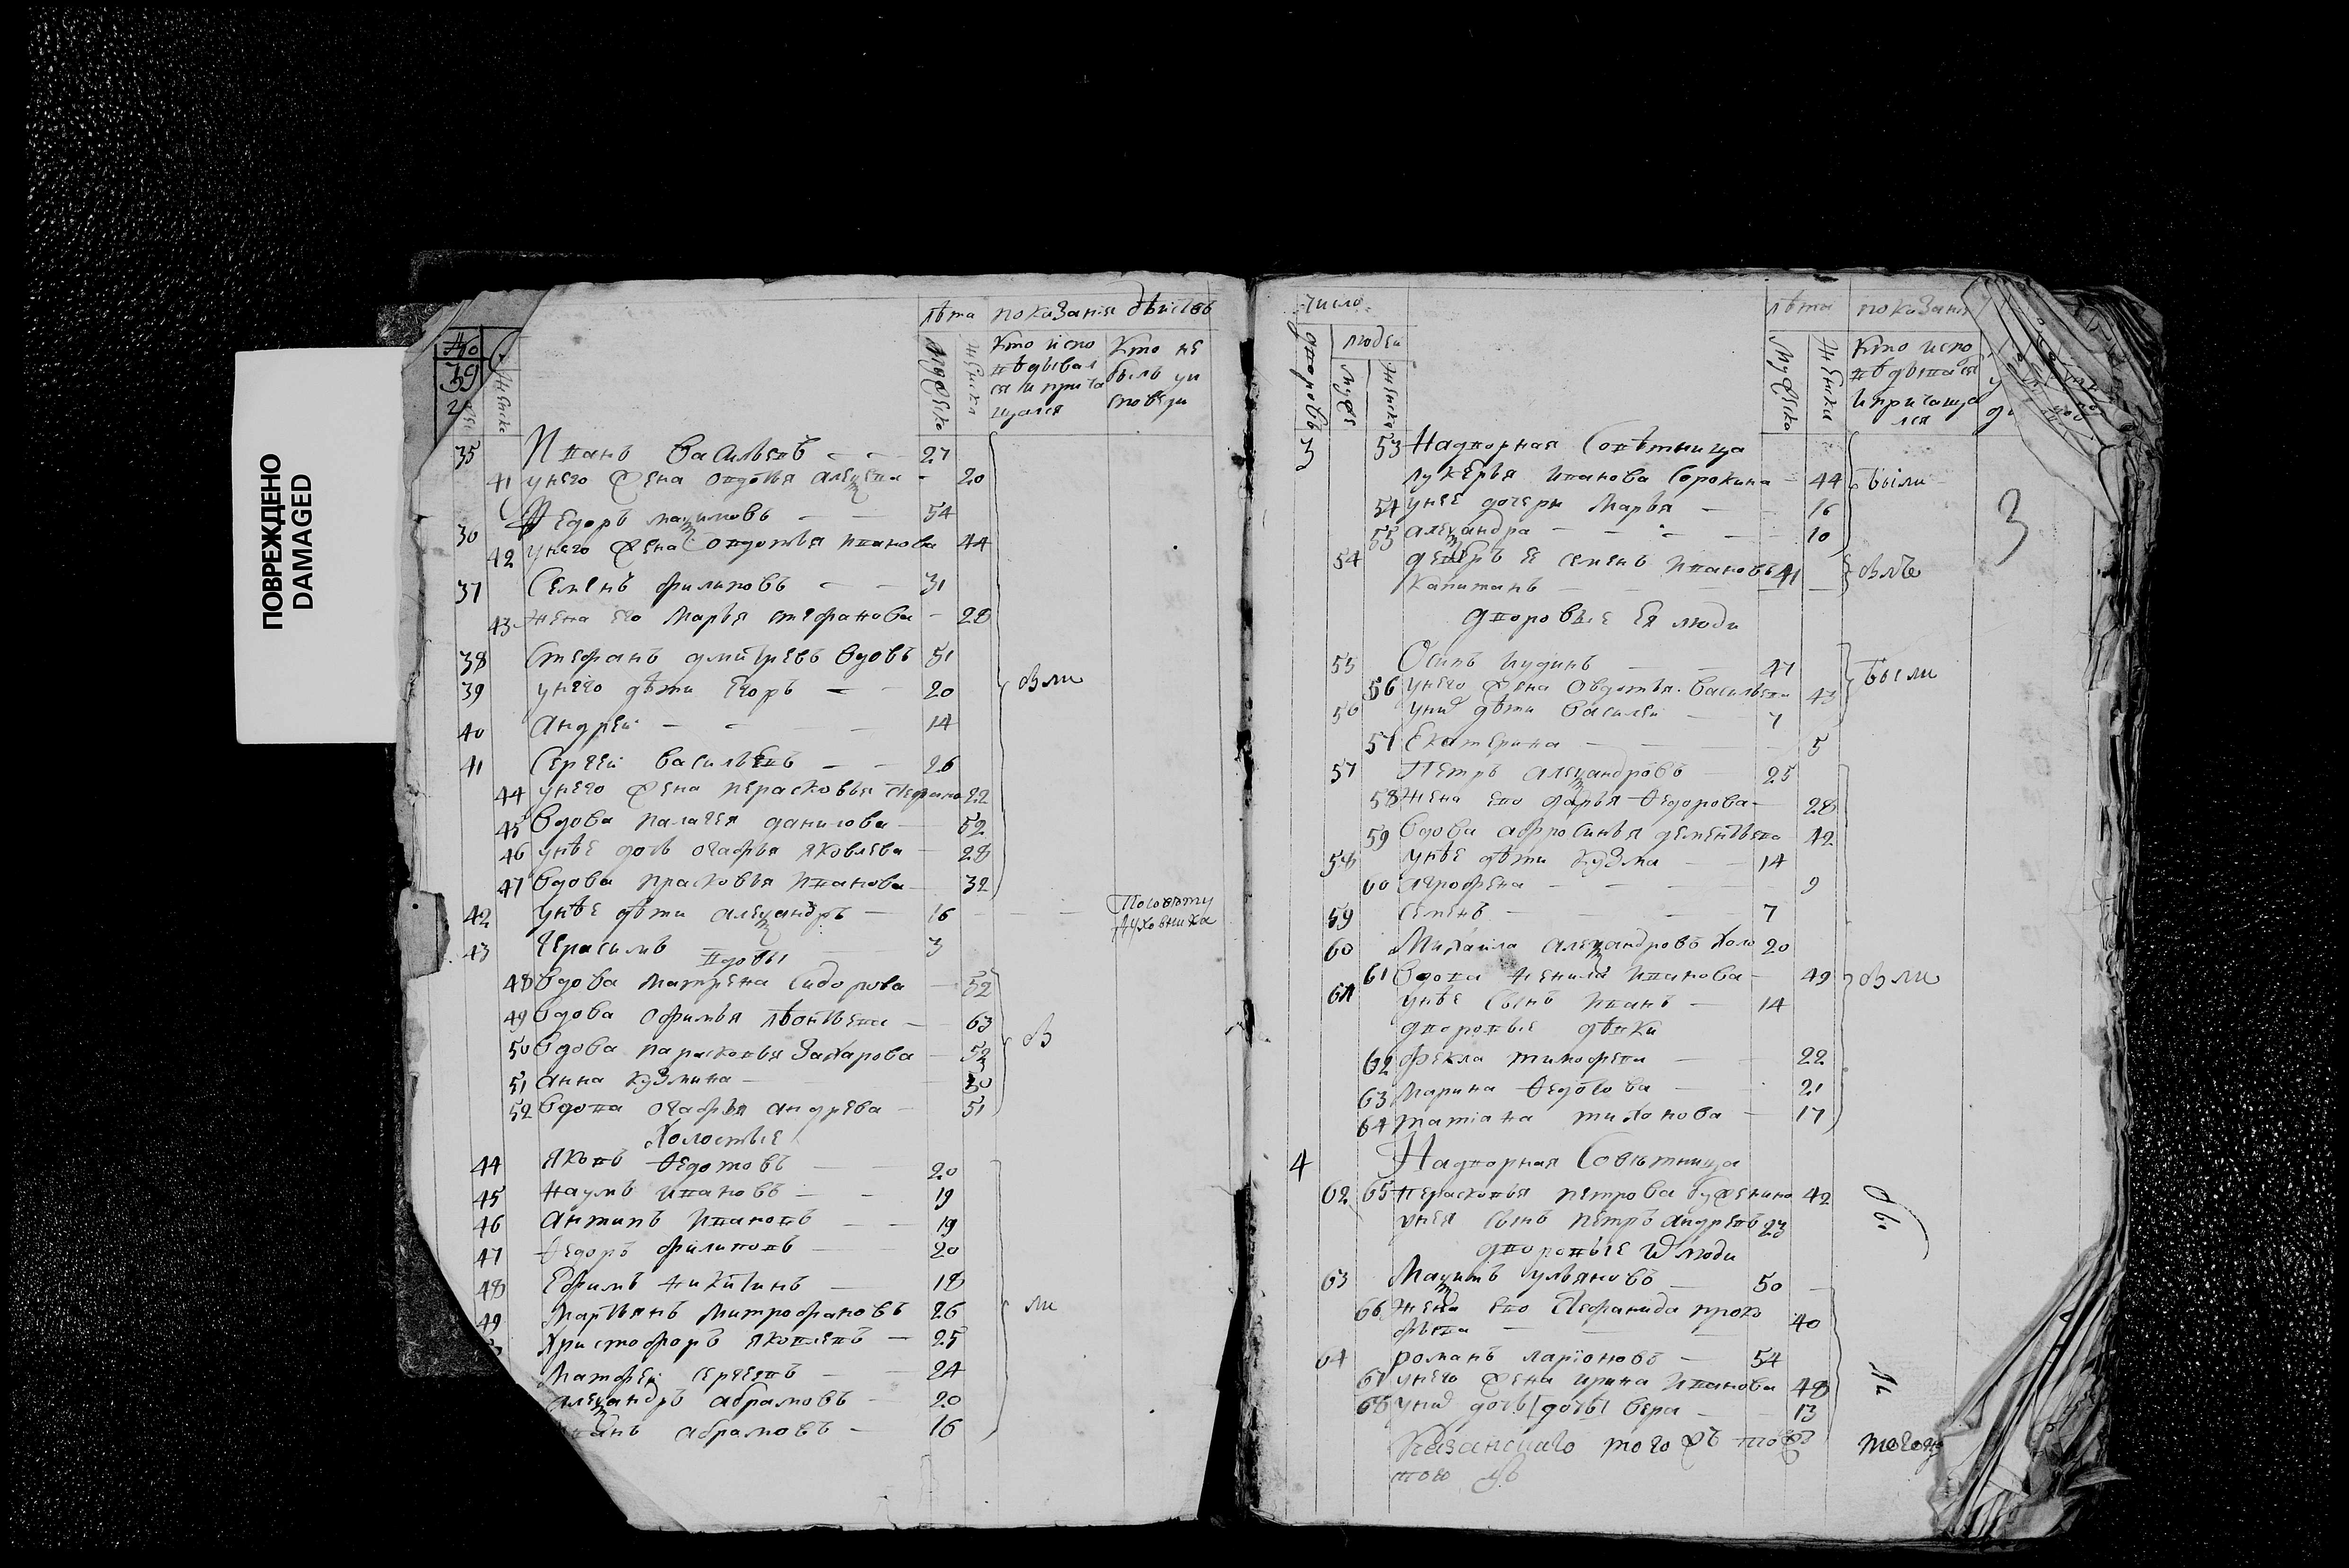 ПОВРЕЖДЕНО
DAMAGED
лѣта показанія
39
мужеска
женска
Кто испо
вѣдывал
ся и прича
щался
Кто не
былъ у и
сповѣди
35 Иванъ Васильевъ 27
41 у него жена Овдотья Алеѯева 20
36 Ѳедоръ Маѯимовъ 54
42 у него жена Овдотья Иванова 44
37 Семенъ Филиповъ 31
43 жена его Марья Стефанова 28
38 Стефанъ Дмитревъ вдовъ 51
39 у него дѣти Егоръ 20
были
40 Андрей 14
41 Сергей Васильевъ 26
44 у него жена Перасковья 22
45 Вдова Палагея Данилова 52
46 у нѣе дочь Огафья Яковлева 28
47 Вдова Прасковья Иванова 32
42 у нѣе дѣти Алеѯандръ 16
По совѣту
духовника
43 Герасимъ 3
вдовы
48 Вдова Матрена Сидорова 52
49 Вдова Офимья Лѣонтьева 63
50 Вдова Парасковья Захарова 52
51 Анна Кузмина
52 Вдова Огафья Андрева 51
Холостые
44 Яковъ Ѳедотовъ 20
45 Наумъ Ивановъ 19
46 Антипъ Ивановъ 19
47 Ѳедоръ Филиповъ 20
48 Ефимъ Никитинъ 18
49 Мартьянъ Митрофановъ 26
ли
Христофоръ Яковлевъ 25
Матфей Сергеевъ 24
Алеѯандръ Абрамовъ 20
Абрамовъ 16
Число
дворовъ
людей
мужес
женска
лѣта
мужеска
женска
показания
Кто испо
вѣдывался
и причаща
лся
3
3 53 Надворная Совѣтница
Лукерья Иванова Сорокина 44 были
54 у нее дочери Марья 16
55 Алеѯандра 10
54 Семенъ Ивановъ 41
Капитанъ
дворовые ея люди
55 Осипъ Июдинъ 47
были
56 у него жена Овдотья Васильева 43
56 у них дѣти Василей 7
57 Екатерина 5
57 Петръ Алеѯандровъ 25
58 жена ево Дарья Ѳедорова 28
59 Вдова Афросинья Дементьева 42
58 у нѣе дѣти Кузма 14
60 Агрофена 9
59 Семенъ 7
60 Михаила Алеѯандровъ холо 20
61 Вдова Ненила Иванова 49
были
61 у нѣе сынъ Иванъ 14
дворовые дѣвки
62 Фекла Тимофеева 22
63 Марина Ѳедотова 21
64 Татіана Тихонова 17
4 Надворная Совѣтница
62 65 Перасковья Петрова Буженино 42
у нея сынъ Петръ Андревъ 23
дворовые люди
63 Маѯимъ Ульяновъ 50
66 жена ево Стефанида Проко
фьева 40
64 Романъ Ларіоновъ 54
67 у него жена Ирина Иванова 48
68 у них дочь Вера 13
того